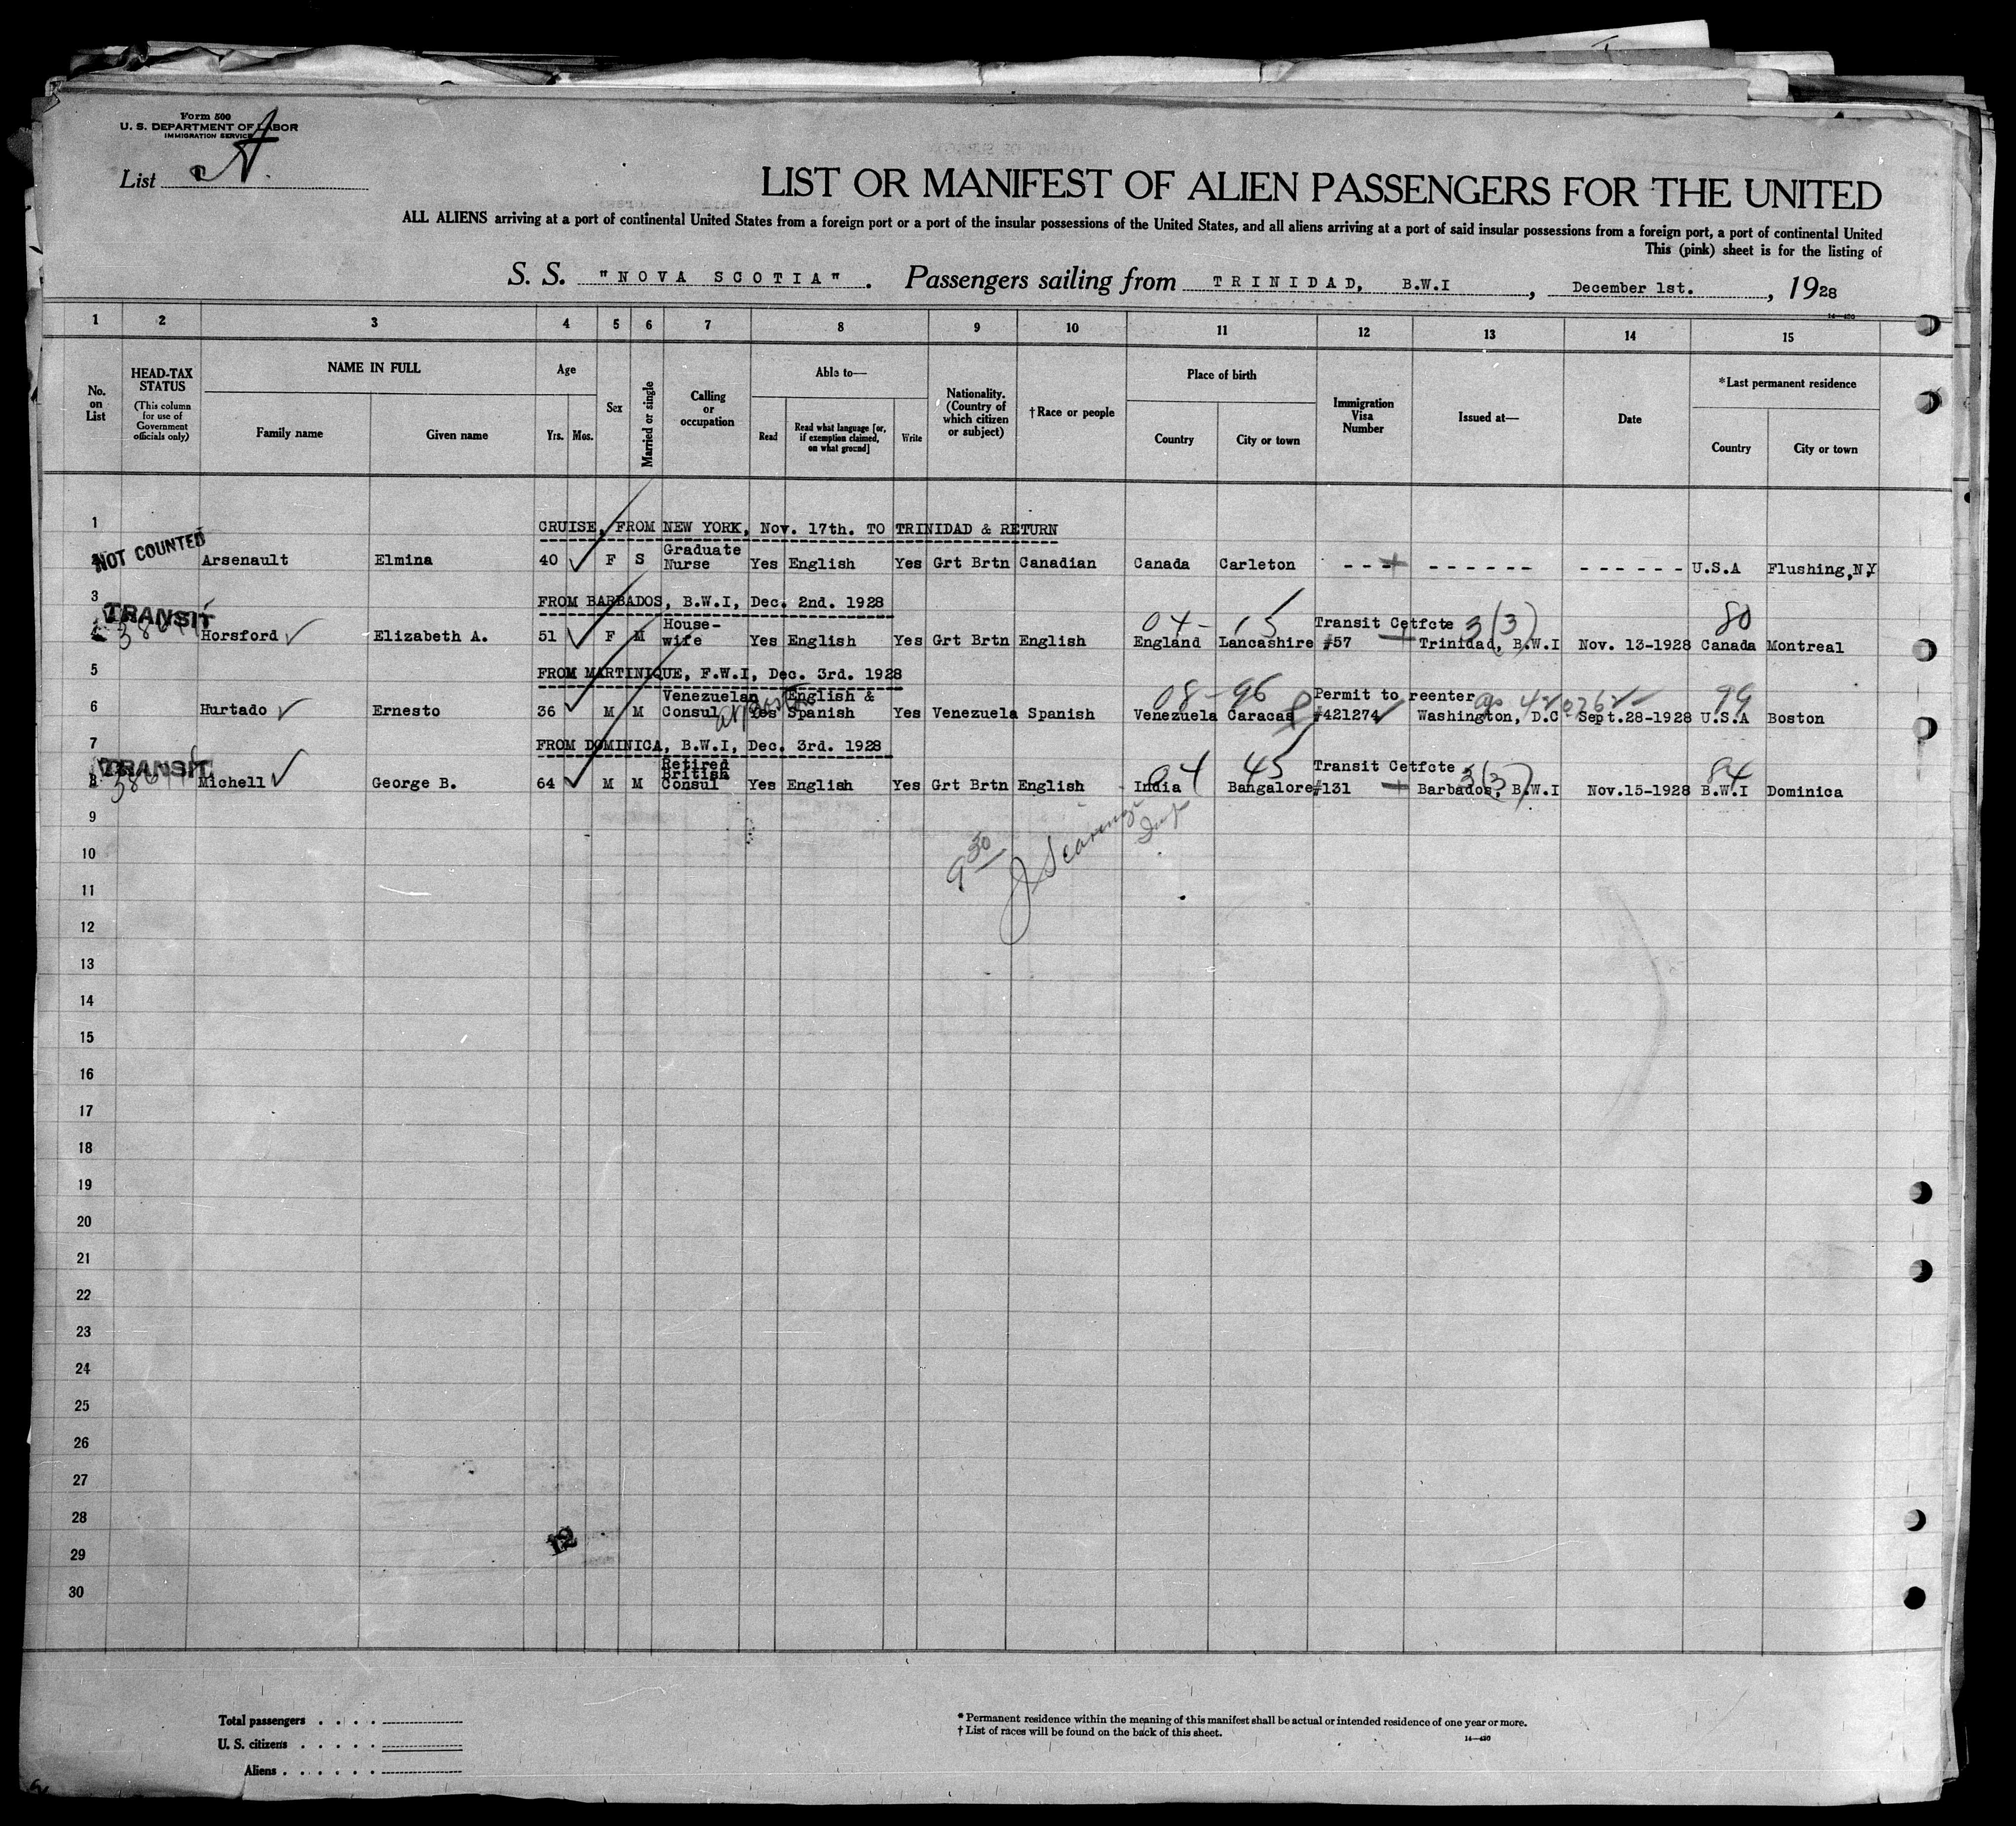 Form 500
U. S. DEPARTMENT OF LABOR
IMMIGRATION SERVICE
List A.
LIST OR MANIFEST OF ALIEN PASSENGERS FOR THE UNITED
ALL ALIENS arriving at a port of continental United States from a foreign port or a port of the insular possessions of the United States, and all aliens arriving at a port of said insular possessions from a foreign port, a port of continental United
This (pink) sheet is for the listing of
S. S. "NOVA SCOTIA". Passengers sailing from TRINIDAD, B.W.I, December 1st., 1928
14—430
1 2 3 4 5 6 7 8 9 10 11 12 13 14 15
No. on List
HEAD-TAX STATUS
(This column for use of Government officials only)
NAME IN FULL
Family name Given name
Age
Yrs. Mos.
Sex
Married or single
Calling or occupation
Able to—
Read
Read what language [or, if exemption claimed, on what ground]
Write
Nationality. (Country of which citizen or subject)
†Race or people
Place of birth
Country City or town
Immigration Visa Number
Issued at—
Date
*Last permanent residence
Country City or town
1 CRUISE, FROM NEW YORK, Nov. 17th. TO TRINIDAD & RETURN
NOT COUNTED Arsenault Elmina 40 F S Graduate Nurse Yes English Yes Grt Brtn Canadian Canada Carleton - - - - - - - - - - - - - - - U.S.A Flushing,N,Y
3 FROM BARBADOS, B.W.I, Dec. 2nd. 1928
TRANSIT
04 - 15 3(3) 80
Horsford Elizabeth A. 51 F M House-wife Yes English Yes Grt Brtn English England Lancashire Transit Cetfcte #57 Trinidad, B.W.I Nov. 13-1928 Canada Montreal
5 FROM MARTINIQUE, F.W.I, Dec. 3rd. 1928
08 - 96 99
6 Hurtado Ernesto 36 M M Venezuelan Consul at Boston Yes English & Spanish Yes Venezuela Spanish Venezuela Caracas Permit to reenter #421274 Washington, D.C Sept.28-1928 U.S.A Boston
7 FROM DOMINICA, B.W.I, Dec. 3rd. 1928
TRANSIT
04 45 3(3) 84
8 Michell George B. 64 M M Retired British Consul Yes English Yes Grt Brtn English India Bangalore Transit Cetfcte #131 Barbados, B.W.I Nov.15-1928 B.W.I Dominica
9
9 30
10
11
12
13
14
15
16
17
18
19
20
21
22
23
24
25
26
27
28
12
29
30
Total passengers . . . .
U. S. citizens . . . . .
Aliens . . . . . .
* Permanent residence within the meaning of this manifest shall be actual or intended residence of one year or more.
† List of races will be found on the back of this sheet.
14—430